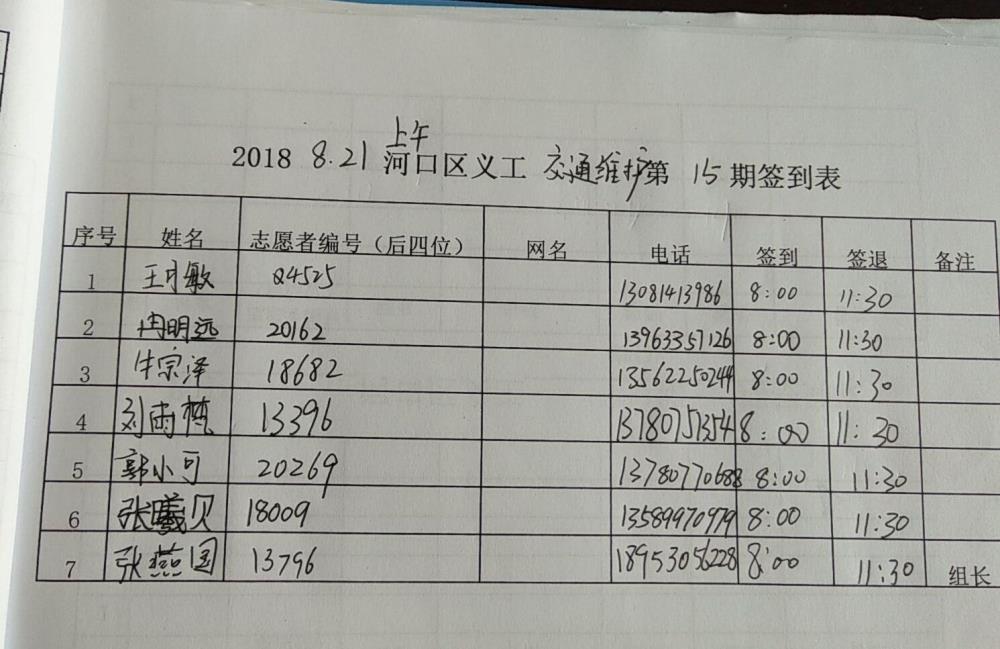 上午
2018 8.21 河口区义工 交通维护第 15 期签到表
序号 姓名 志愿者编号（后四位） 网名 电话 签到 签退 备注
1 敏 24525 13081413986 8:00 11:30
2 冉明远 20162 13963357126 8:00 11:30
3 牛宗泽 18682 13562250244 8:00 11:30
4 刘雨 13396 13780751354 8:00 11:30
5 郭小可 20269 13780770688 8:00 11:30
6 张曦贝 18009 13589970979 8:00 11:30
7 张燕国 13796 18953056228 8:00 11:30 组长